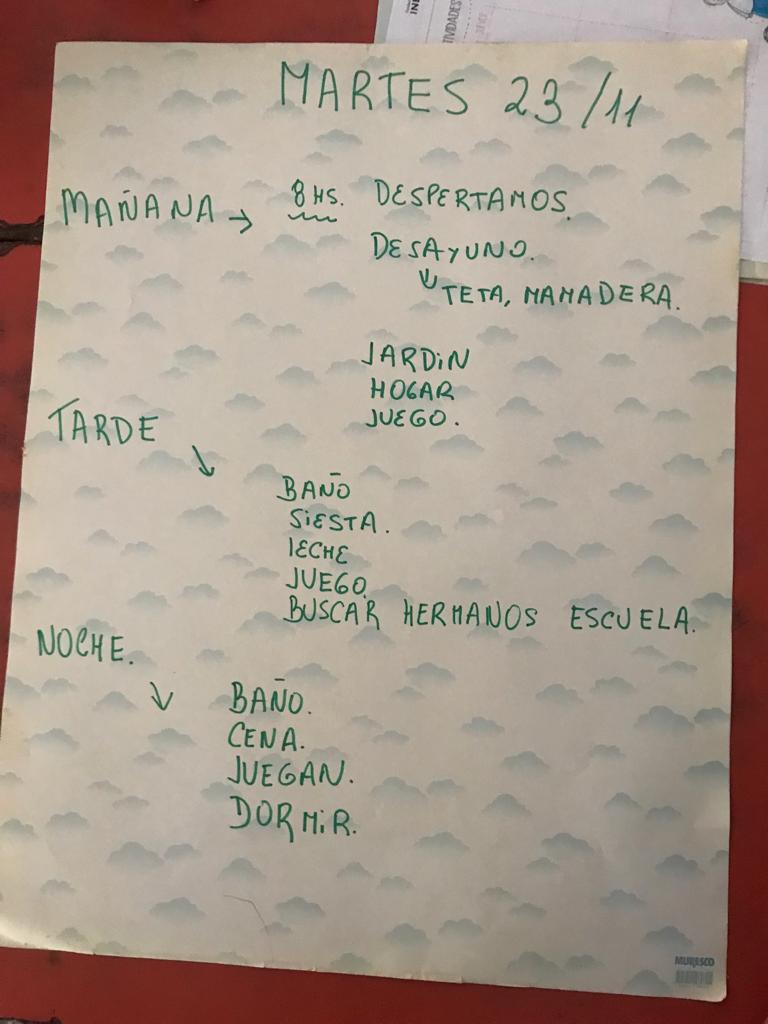 MARTES 23/11
MAÑANA → 8 HS. DESPERTAMOS.
DESAYUNO.
↓ TETA, MAMADERA.
JARDIN
HOGAR
JUEGO.
TARDE
↓
BAÑO
SIESTA.
LECHE
JUEGO
BUSCAR HERMANOS ESCUELA.
NOCHE.
↓ BAÑO.
CENA.
JUEGAN.
DORMIR.
MURESCO